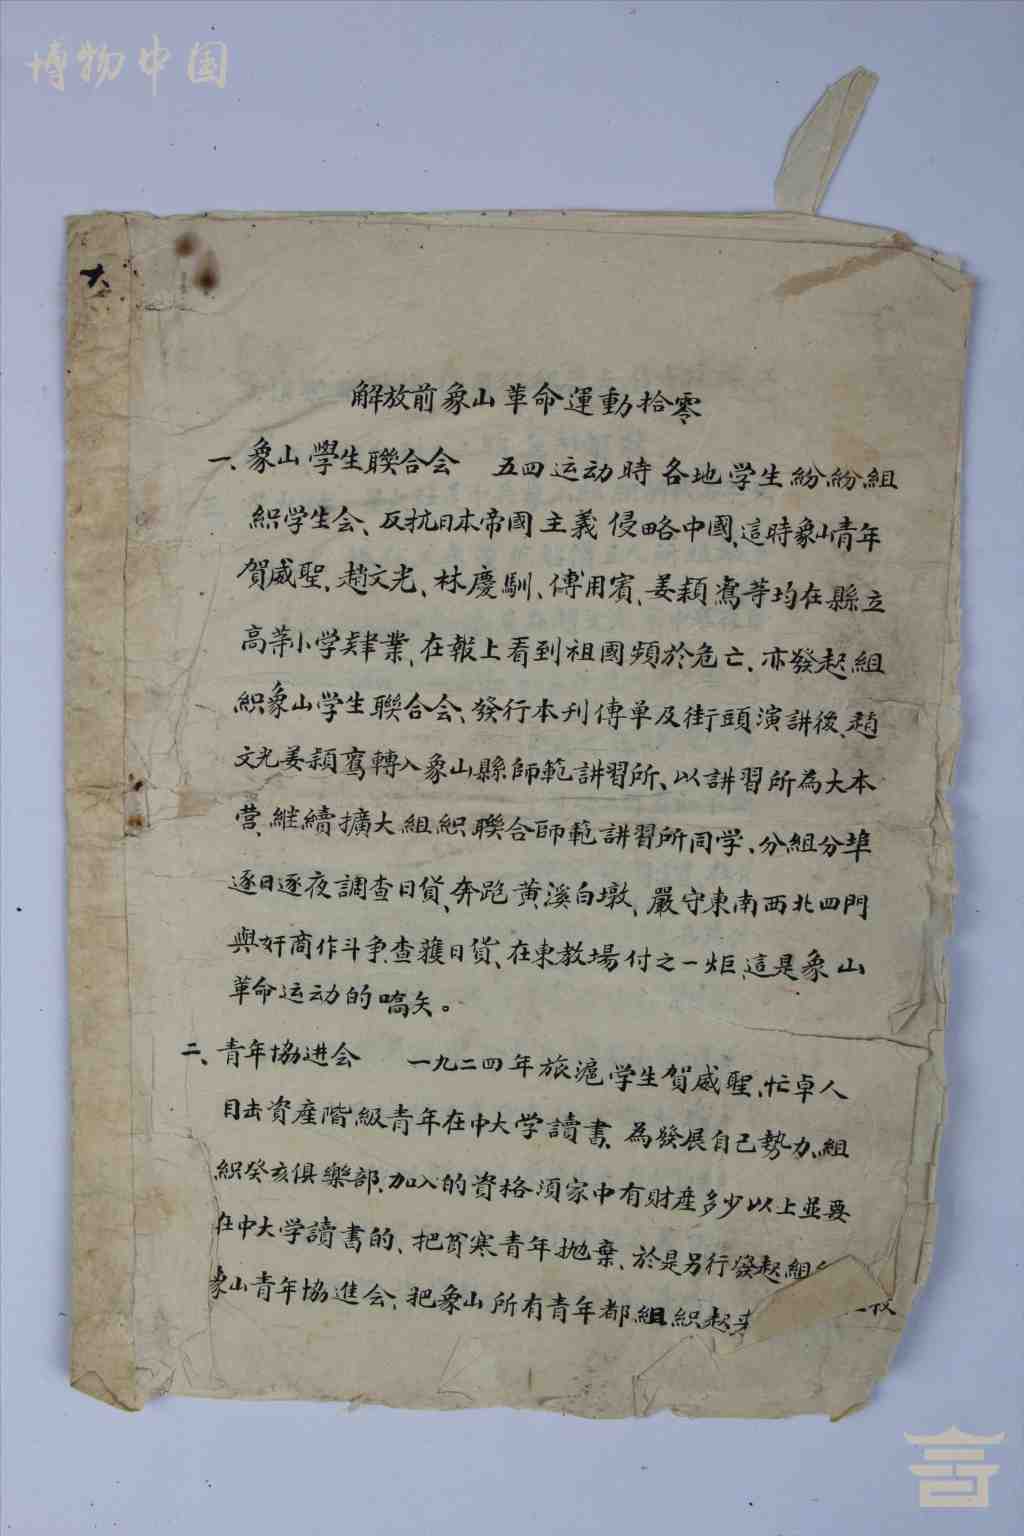 博物中国
大
解放前象山革命運動拾零
一、象山學生聯合会 五四运动時各地学生紛紛組
織学生会、反抗日本帝國主義侵略中國、這時象山青年
賀威聖、趙文光、林慶馴、傅用賓、姜頴鴌等均在縣立
高等小学肄業、在報上看到祖國頻於危亡、亦發起組
織象山学生聯合会、發行本刋傳单及街頭演講後、趙
文光姜頴鴌轉入象山縣師範講習所、以講習所為大本
营、継續擴大組織聯合師範講習所同学、分組分埠
逐日逐夜調查日貨、奔跑黄溪白墩、嚴守東南西北四門
與奸商作斗争、查獲日貨、在東教場付之一炬、這是象山
革命运动的嚆矢。
二、青年協进会 一九二四年旅滬学生賀威聖、忙卓人
目击資産階級青年在中大学讀書、為發展自己勢力、組
織癸亥俱樂部、加入的資格須家中有財産多少以上並要
在中大学讀書的、把貧寒青年抛棄、於是另行發起組
象山青年協進会、把象山所有青年都組織起来